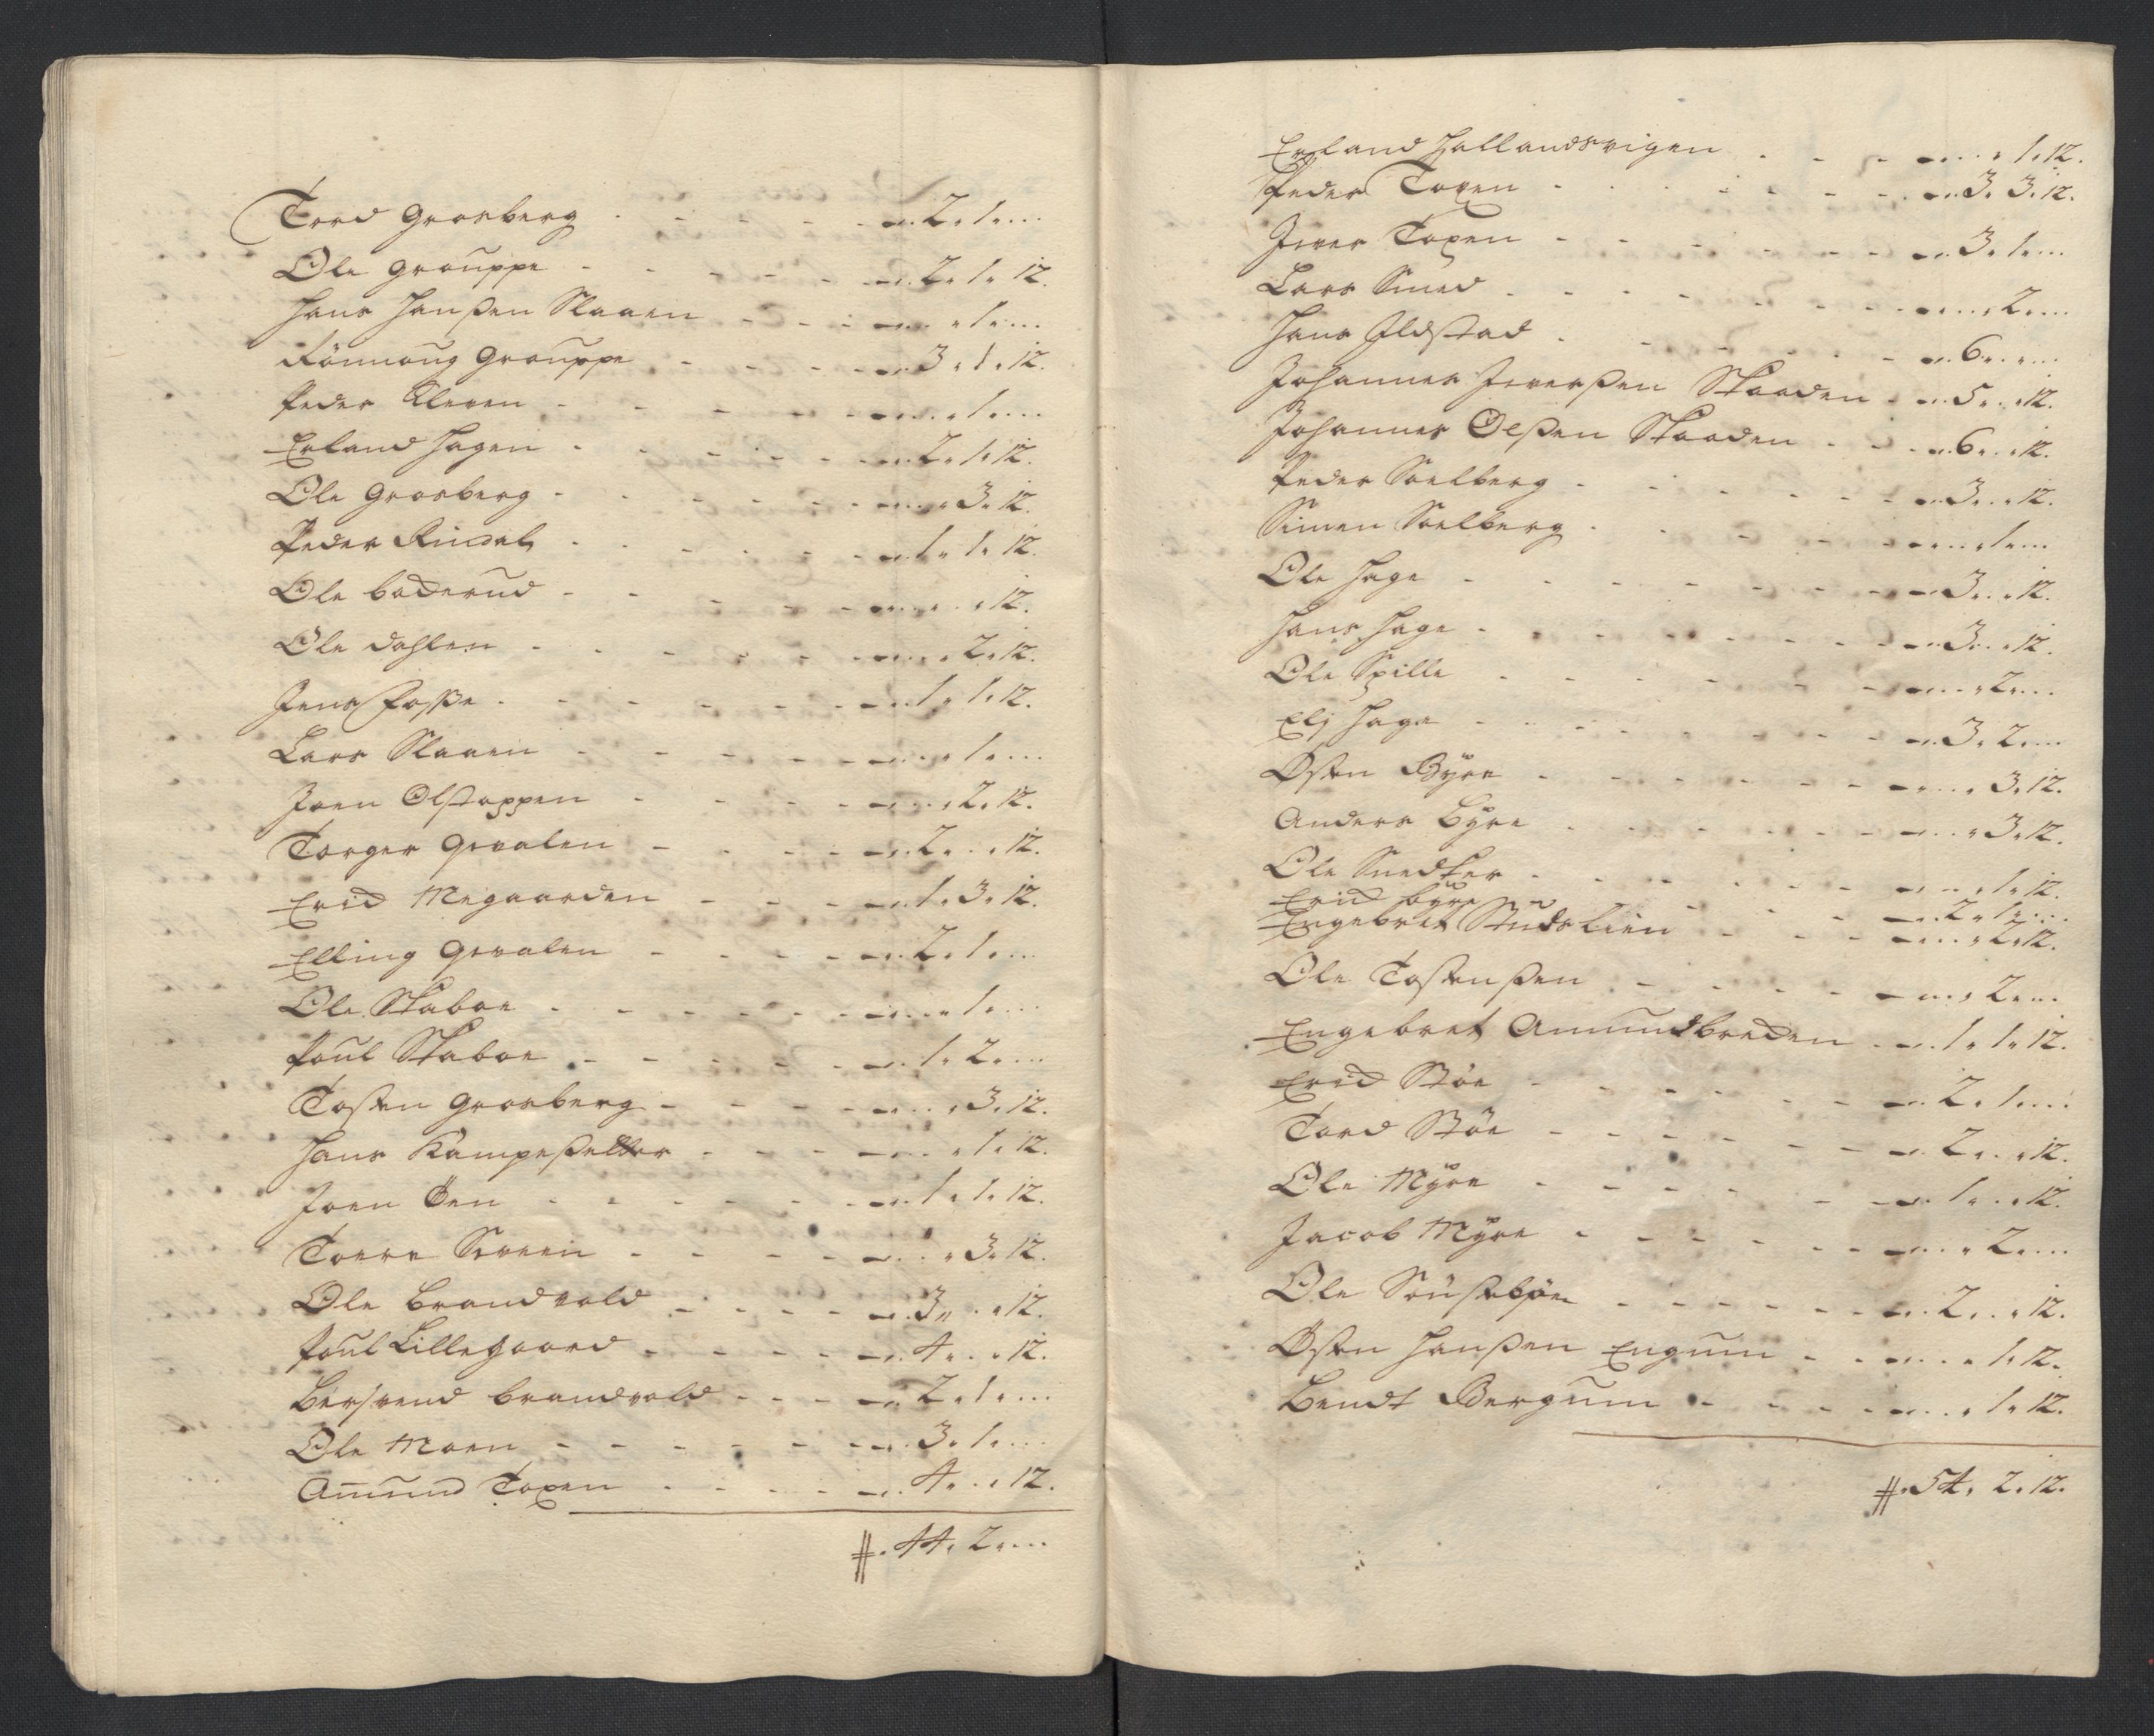 Tord Grosberg - - - - 2. 1. ...
Ole Grouppe - - - - 2. 1. 12.
Hans Hanßen Slaaen - - - 1. ...
Rönnoug Grouppe - - - 3. 1. 12.
Peder Kleven - - - - 1. ...
Erland Hagen - - - - 2. 1. 12.
Ole Grosberg - - - - 3. 12.
Peder Rindal - - - - 1. 1. 12.
Ole baderud - - - - 12.
Ole Dahlen - - - - 2. 12.
Jens Foße - - - - 1. 1. 12.
Lars Slaaen - - - - 1. ...
Joen Olstappen - - - - 2. 12.
Torger Qvalen - - - - 2. . 12.
Erich Megaarden - - - 1. 3. 12.
Elling Qvalen - - - - 2. 1. ...
Ole Staboe - - - - 1. ...
Poul Staboe - - - - 1. 2. ...
Tosten Grosberg - - - - 3. 12.
Hans Kampeßetter - - - 1. 12.
Joen Øen - - - - 1. 1. 12.
Toere Sveen - - - - 3. 12.
Ole Brandvold - - - - 3. . 12.
Poul Lillegaard - - - - 4. . 12.
Bersvend brandvold - - - 2. 1. ...
Ole Moen - - - - 3. 1. ...
Amund Toxen - - - - 4. . 12.
#. 44. 2. ...
Erland Hallandsvigen - - - 1. 12.
Peder Toxen - - - - 3. 3. 12.
Iver Toxen - - - - 3. 1. ...
Lars Smed - - - - 2. ...
Hans Ildstad - - - - 6. . ...
Johannes Iverßen Staaden - 5. . 12.
Johannes Olßen Staaden - - 6. . 12.
Peder Soelberg - - - - 3. . 12.
Simen Soelberg - - - - 1. ...
Ole Hage - - - - 3. . 12.
Hans Hage - - - - 3. . 12.
Ole Spille - - - - 2. ...
Elj Hage - - - - 3. 2. ...
Østen Byre - - - - 3. 12.
Anders Byre - - - - 3. 12.
Ole Snedker - - - - 1. 12.
Erich byre - - - - 2. 1. ...
Engebret Studslien - - - 2. 12.
Ole Tostenßen - - - - 2. ...
Engebret Amundbreden - - 1. 1. 12.
Erich Støe - - - - 2. 1. ...
Tord Støe - - - - 2. . 12.
Ole Myre - - - - 1. . 12.
Jacob Myre - - - - 2. ...
Ole - - - - 2. . 12.
Østen Hanßen Engum - - - 1. 12.
Bendt Bergum - - - - 1. 12.
#. 54. 2. 12.